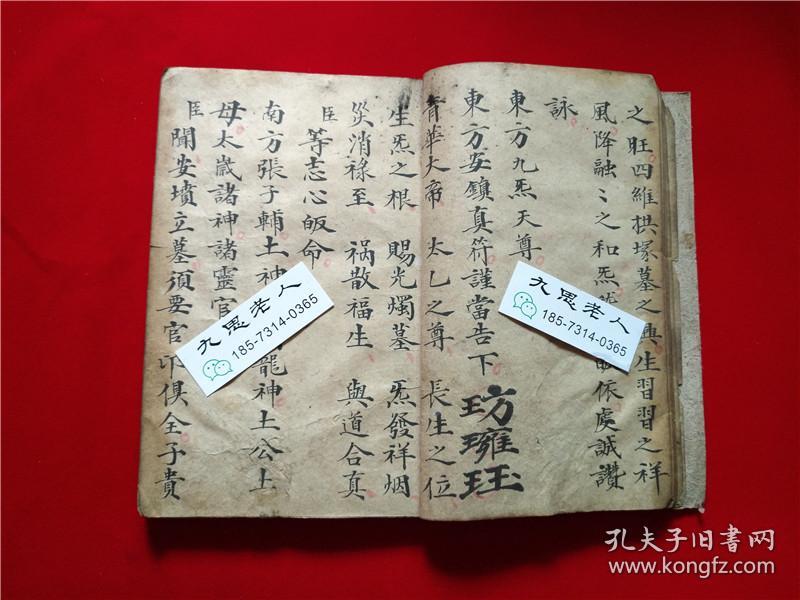 之旺四維拱塚墓之興生習習之祥
風降融〻之和炁 依虔誠讚
詠
東方九炁天尊
東方安鎮真符謹當告下
青華大帝 太乙之尊 長生之位
生炁之根 賜光燭墓 炁發祥烟
災消祿至 禍散福生 與道合真
臣等志心皈命
南方張子輔土神 龍神土公土
母太歲諸神諸靈官
臣聞安墳立墓須要官印俱全子貴
九愚老人
185-7314-0365
九愚老人
185-7314-0365
孔夫子旧书网
www.kongfz.com